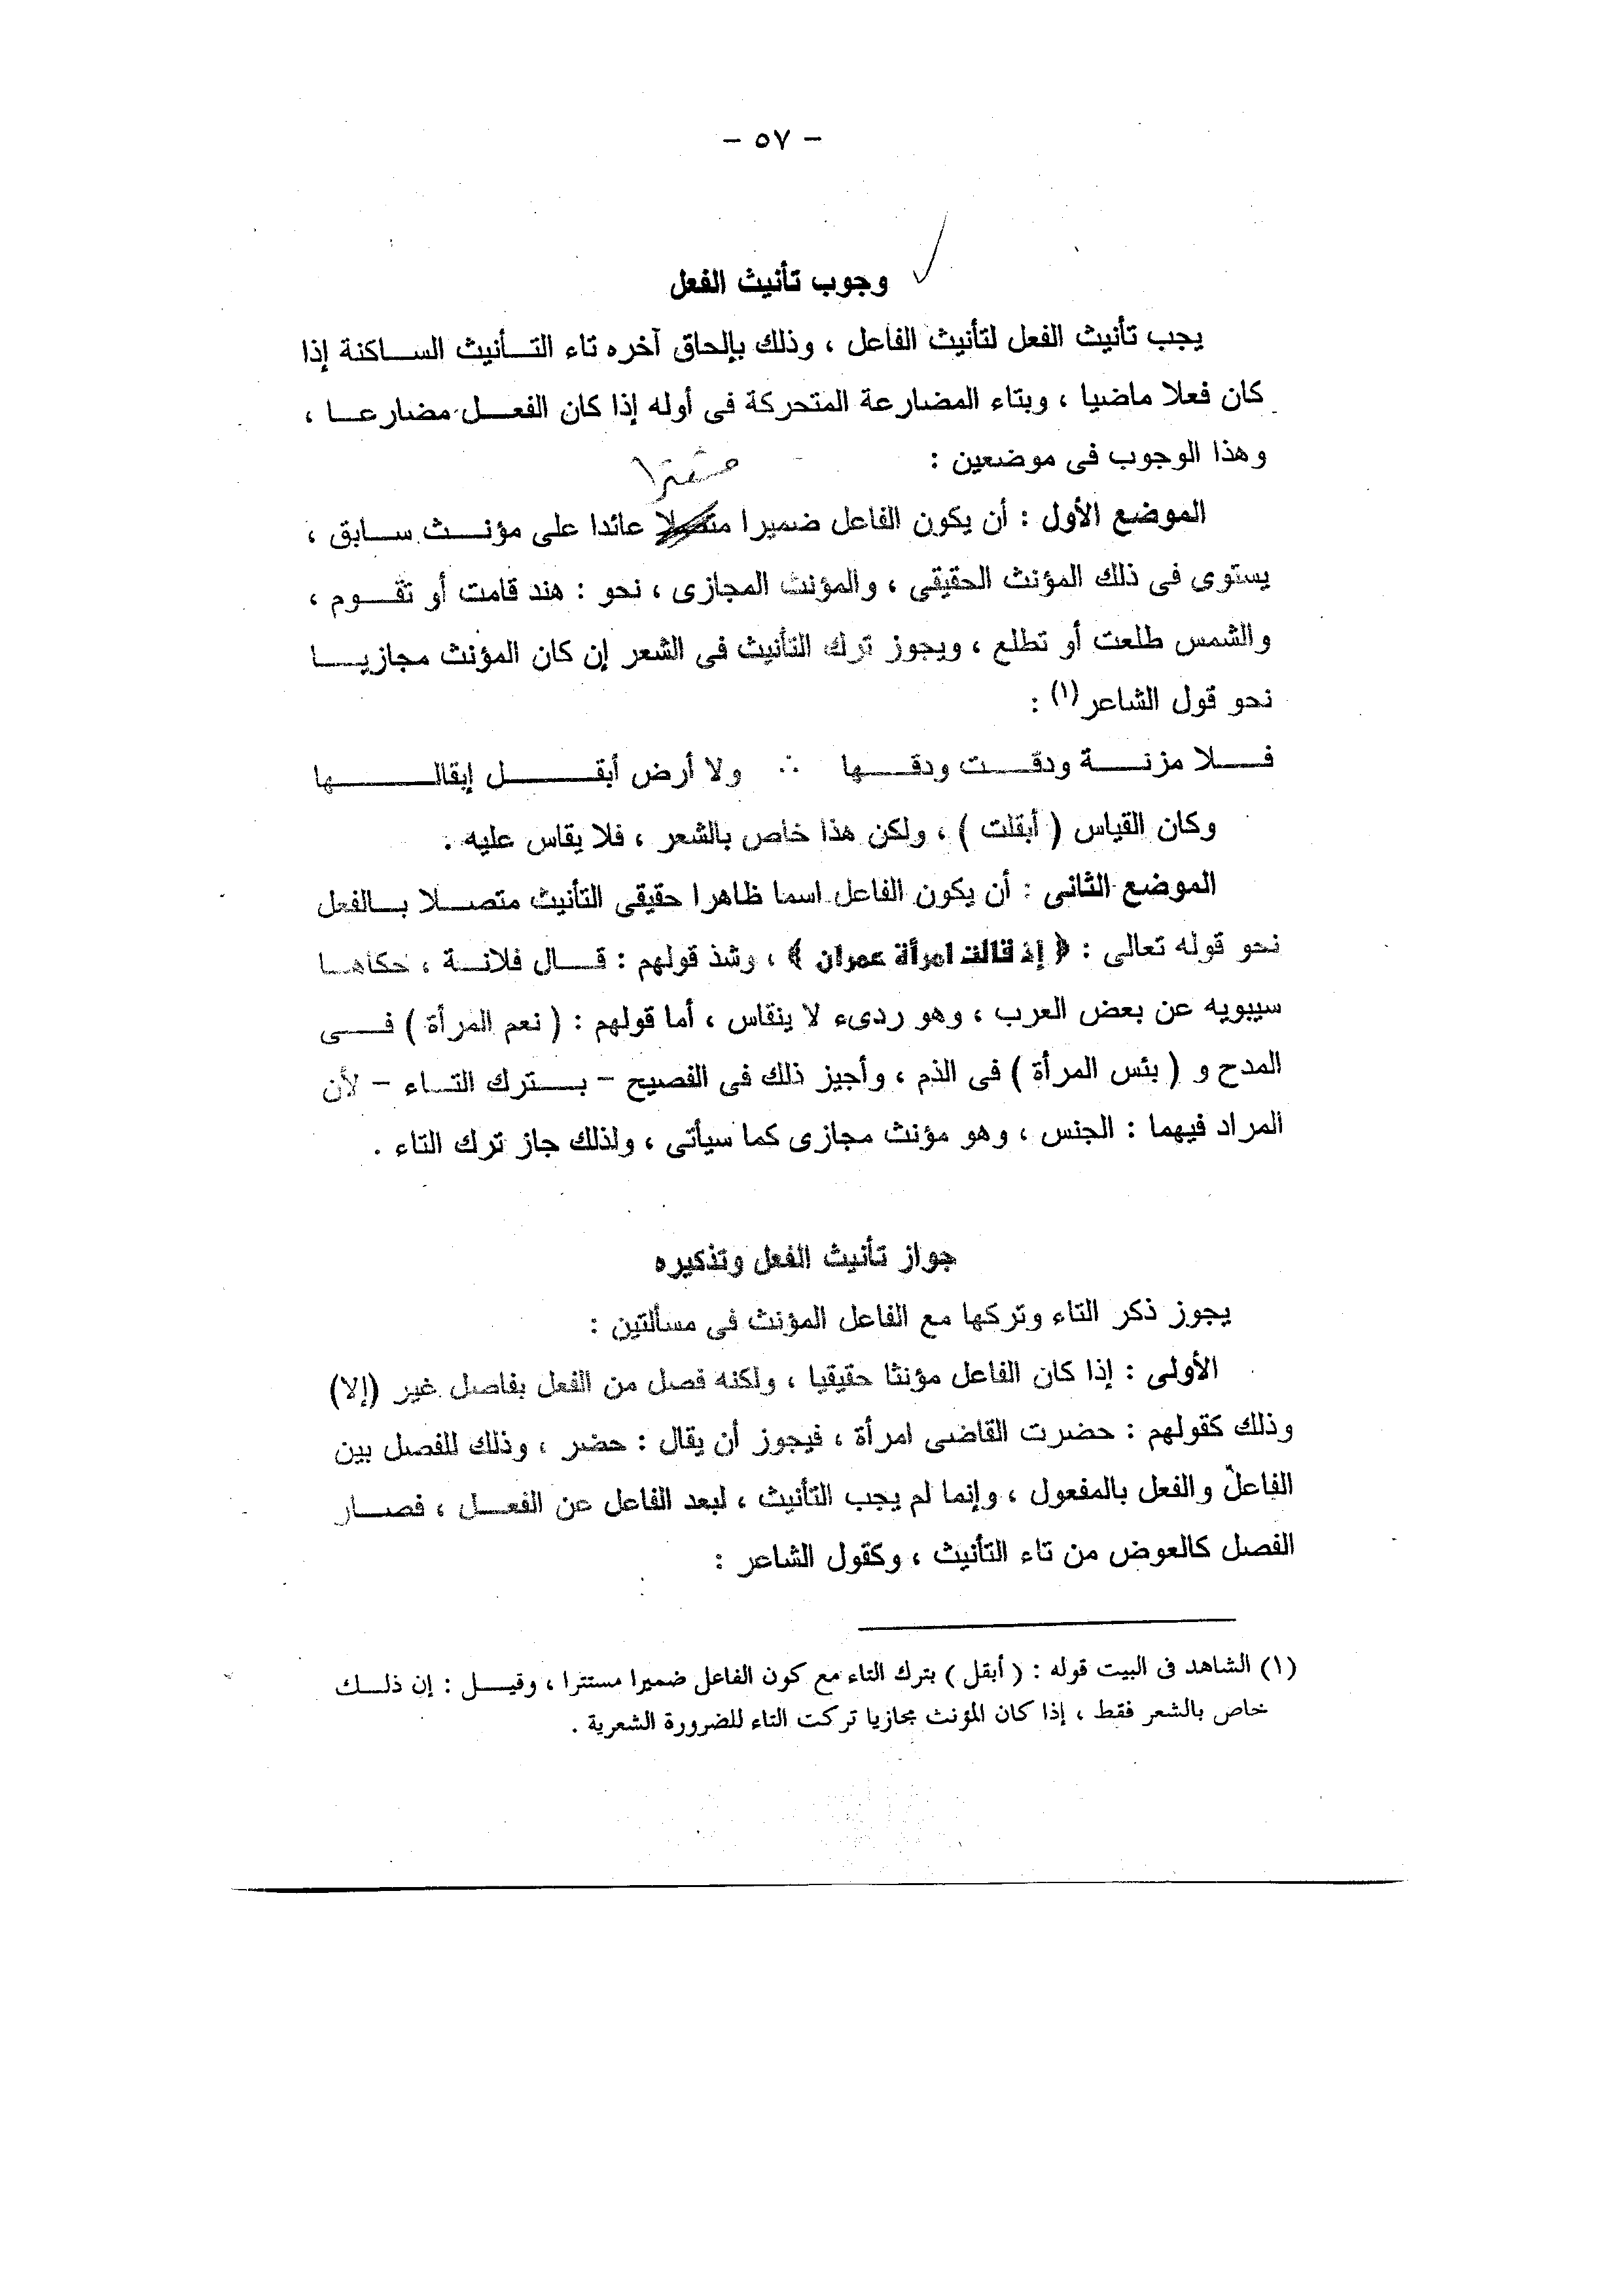 - ٥٧ -
وجوب تأنيث الفعل
يجب تأنيث الفعل لتأنيث الفاعل ، وذلك بإلحاق آخره تاء التأنيث الساكنة إذا
كان فعلا ماضيا ، وبتاء المضارعة المتحركة فى أوله إذا كان الفعل مضارعا ،
وهذا الوجوب فى موضعين :
مستترا
الموضع الأول : أن يكون الفاعل ضميرا متصلا عائدا على مؤنث سابق ،
يستوى فى ذلك المؤنث الحقيقى ، والمؤنث المجازى ، نحو : هند قامت أو تقوم ،
والشمس طلعت أو تطلع ، ويجوز ترك التأنيث فى الشعر إن كان المؤنث مجازيا
نحو قول الشاعر (١) :
فلا مزنة ودقت ودقها ∴ ولا أرض أبقل إبقالها
وكان القياس ( أبقلت ) ، ولكن هذا خاص بالشعر ، فلا يقاس عليه .
الموضع الثانى : أن يكون الفاعل اسما ظاهرا حقيقى التأنيث متصلا بالفعل
نحو قوله تعالى : ﴿ إذ قالت امرأة عمران ﴾ ، وشذ قولهم : قال فلانة ، حكاها
سيبويه عن بعض العرب ، وهو ردىء لا ينقاس ، أما قولهم : ( نعم المرأة ) فى
المدح و ( بئس المرأة ) فى الذم ، وأجيز ذلك فى الفصيح - بترك التاء - لأن
المراد فيهما : الجنس ، وهو مؤنث مجازى كما سيأتى ، ولذلك جاز ترك التاء .
جواز تأنيث الفعل وتذكيره
يجوز ذكر التاء وتركها مع الفاعل المؤنث فى مسألتين :
الأولى : إذا كان الفاعل مؤنثا حقيقيا ، ولكنه فصل من الفعل بفاصل غير (إلا)
وذلك كقولهم : حضرت القاضى امرأة ، فيجوز أن يقال : حضر ، وذلك للفصل بين
الفاعل والفعل بالمفعول ، وإنما لم يجب التأنيث ، لبعد الفاعل عن الفعل ، فصار
الفصل كالعوض من تاء التأنيث ، وكقول الشاعر :
(١) الشاهد فى البيت قوله : ( أبقل ) بترك التاء مع كون الفاعل ضميرا مستترا ، وقيل : إن ذلك
خاص بالشعر فقط ، إذا كان المؤنث مجازيا تركت التاء للضرورة الشعرية .